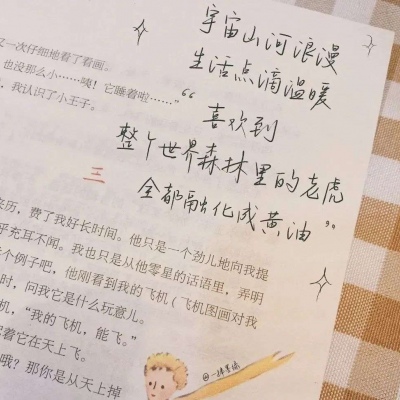 宇宙山河浪漫
生活点滴温暖
“喜欢到
整个世界森林里的老虎
全都融化成黄油”
又一次仔细地看了看画。
也没那么小……咦！它睡着啦……”
，我认识了小王子。
三
来历，费了我好长时间。他只是一个劲儿地向我提
乎充耳不闻。我也只是从他零星的话语里，弄明
个例子吧，他刚看到我的飞机（飞机图画对我
时，问我它是什么玩意儿。
机，“我的飞机，能飞。”
着它在天上飞。
哦？那你是从天上掉